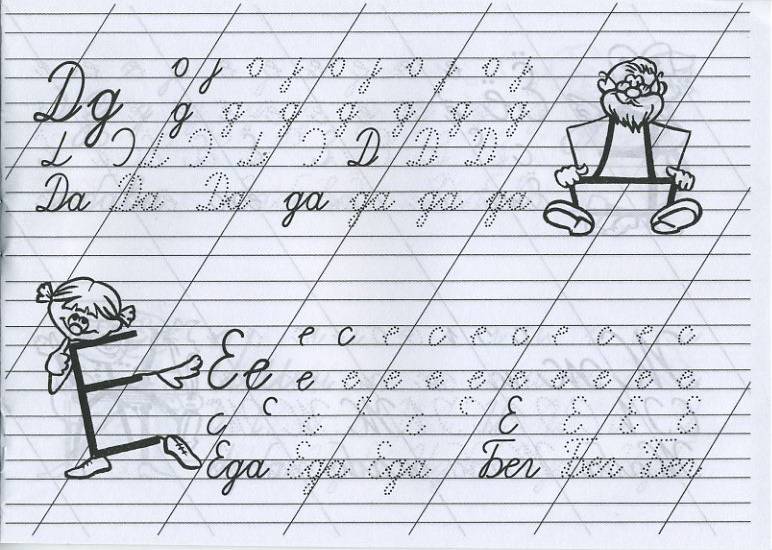 Дд
д д д д д д д
Д Д Д
Да Да Да да да да да
Ее е с е с е с е с е с
е е е е е е е е е е
Е Е Е Е
Еда Еда Еда Бег Бег Бег